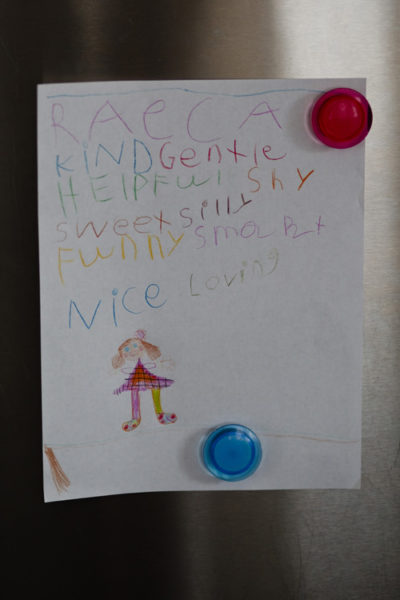 RAeCA
KiND Gentle
HElPFul Shy
Sweet silly
FUNNY SmaRt
NiCe Loving